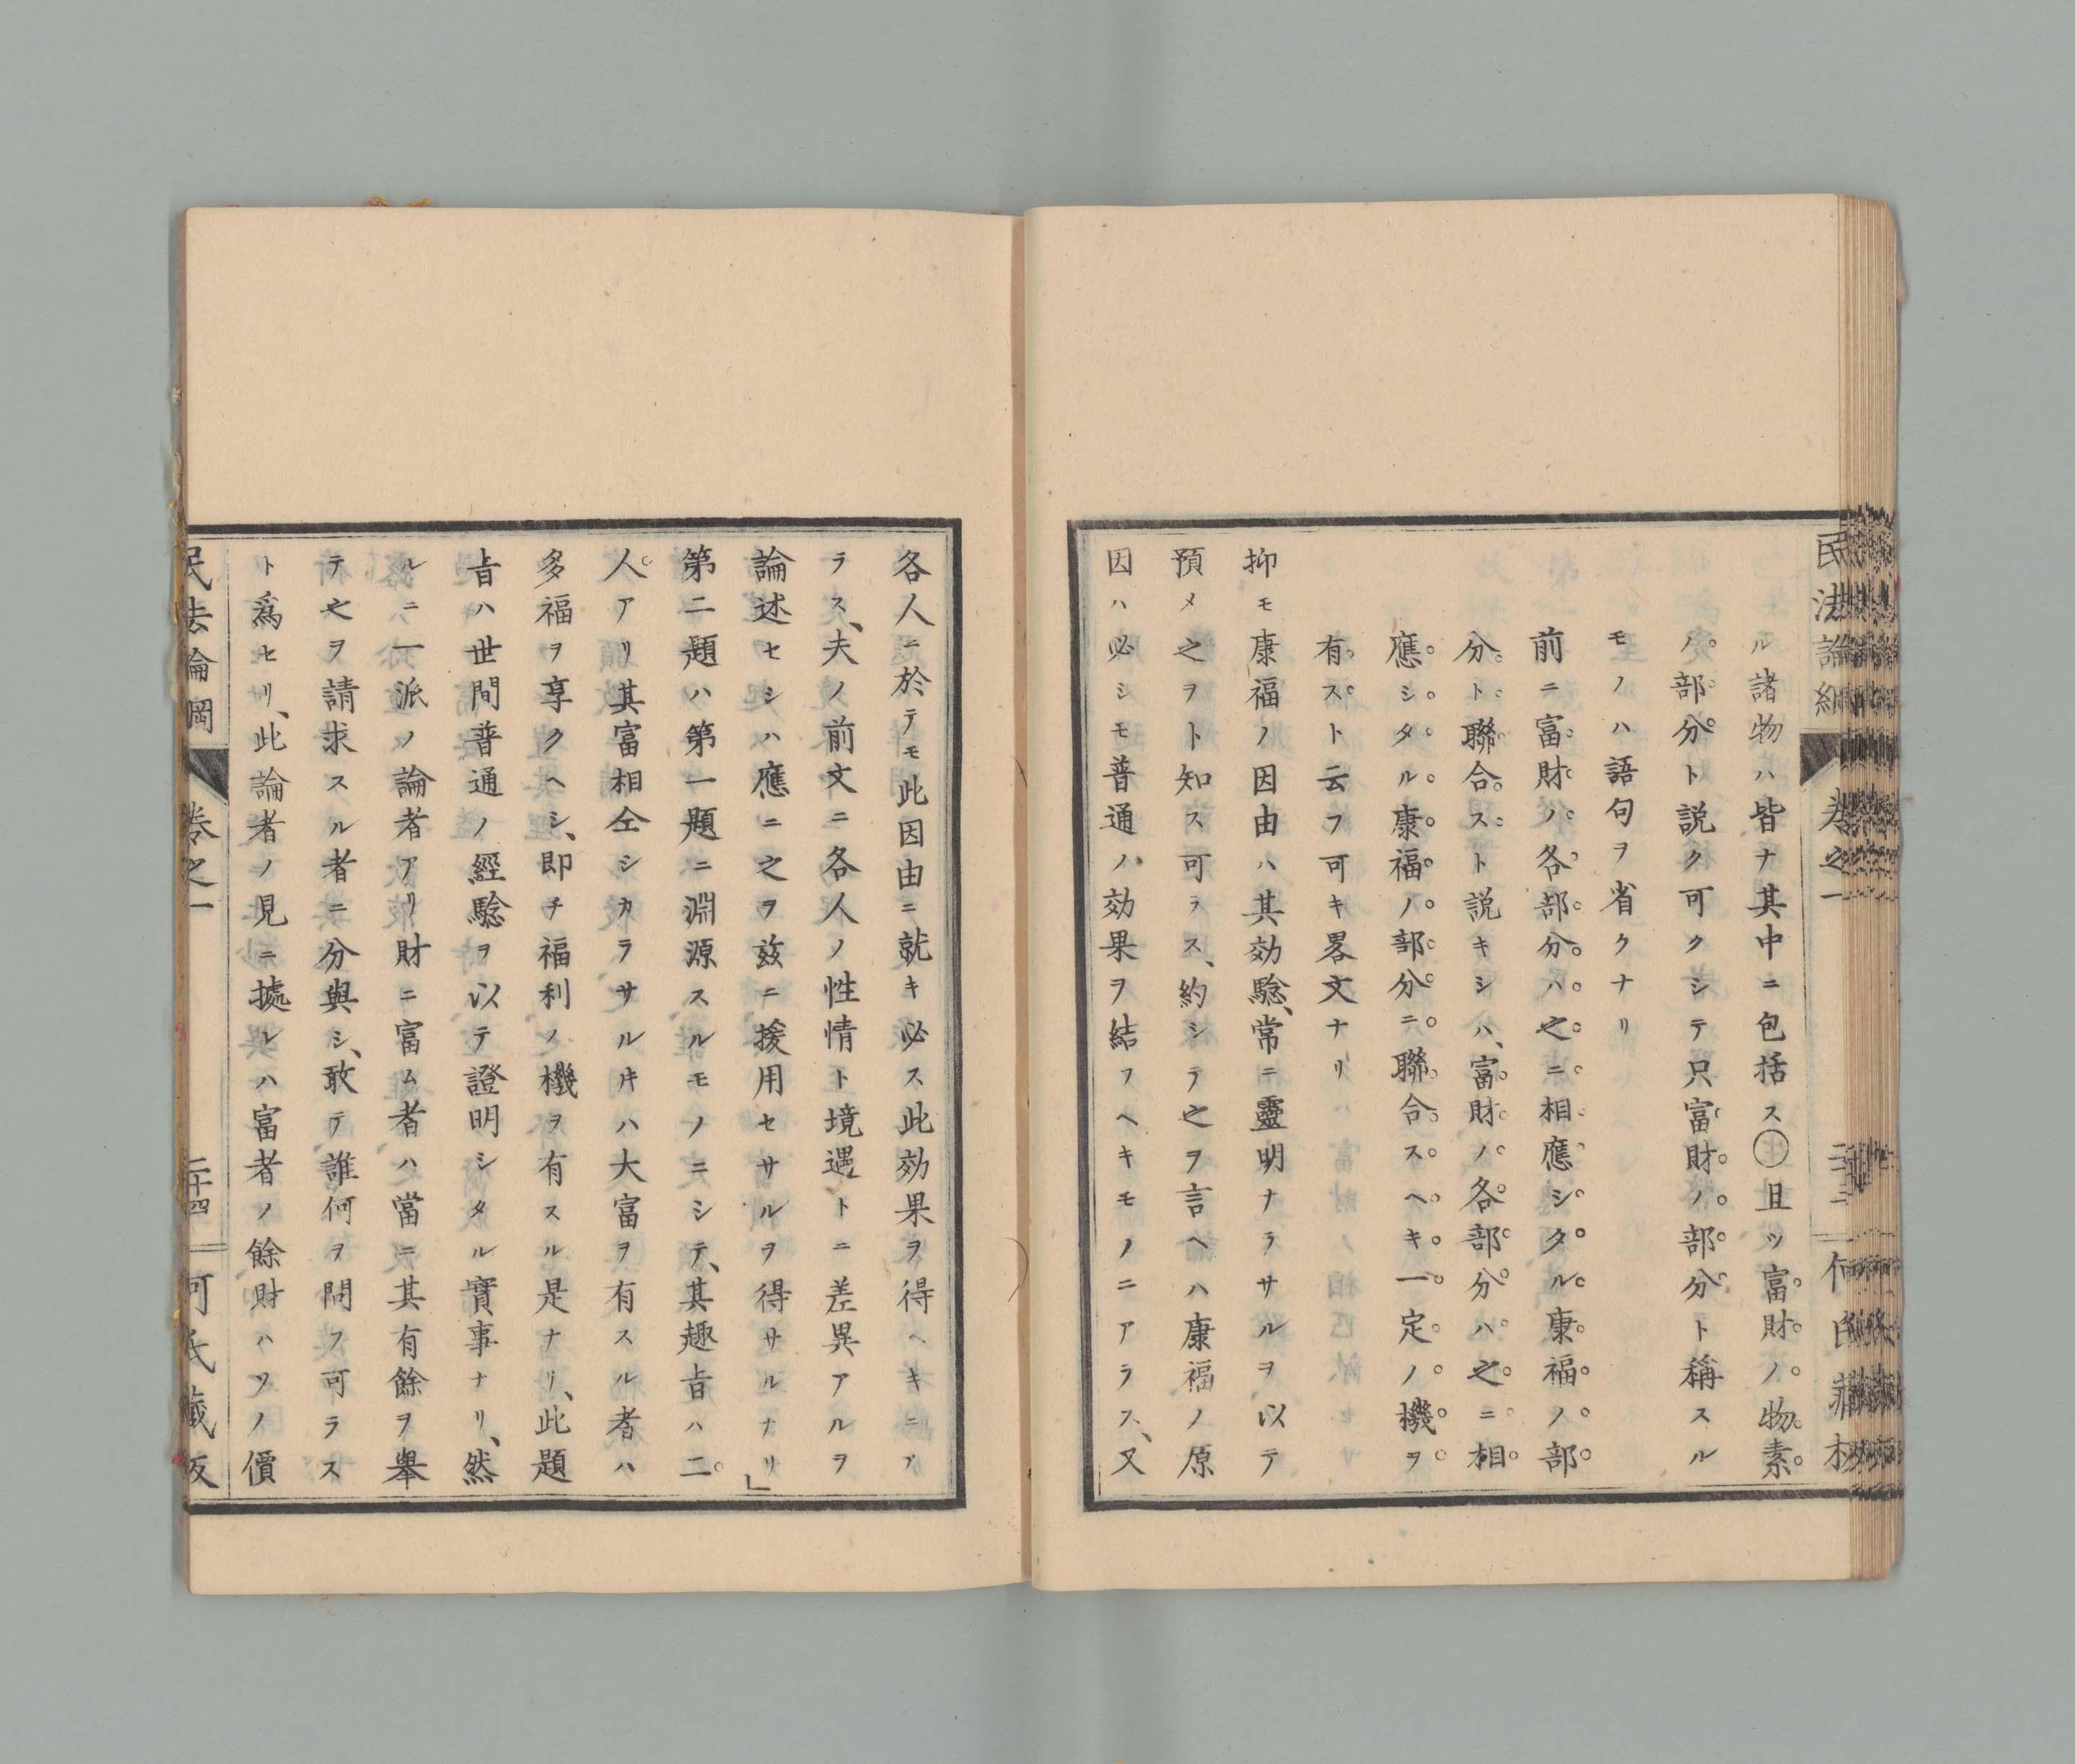 民法論綱　卷之一
ル諸物ハ皆ナ其中ニ包括ス〇且ツ富財ノ物素
ノ部分ト説ク可クシテ只富財ノ部分ト稱スル
モノハ語句ヲ省クナリ
前ニ富財ノ各部分ハ之ニ相應シタル康福ノ部
分ト聯合スト説キシハ、富財ノ各部分ハ之ニ相
應シタル康福ノ部分ニ聯合スヘキ一定ノ機ヲ
有スト云フ可キ畧文ナリ
抑モ康福ノ因由ハ其効驗、常ニ靈明ナラサルヲ以テ
預メ之ヲト知ス可ラス、約シテ之ヲ言ヘハ康福ノ原
因ハ必シモ普通ノ効果ヲ結フヘキモノニアラス、又
各人ニ於テモ此因由ニ就キ必ス此効果ヲ得ヘキニア
ラス、夫ノ前文ニ各人ノ性情ト境遇トニ差異アルヲ
論述セシハ應ニ之ヲ玆ニ援用セサルヲ得サルナリ」
第二題ハ第一題ニ淵源スルモノニシテ、其趣旨ハ二
人アリ其富相仝シカラサルキハ大富ヲ有スル者ハ
多福ヲ享クヘシ、即チ福利ノ機ヲ有スル是ナリ、此題
旨ハ世間普通ノ經驗ヲ以テ證明シタル實事ナリ、然
ルニ一派ノ論者アリ財ニ富ム者ハ當ニ其有餘ヲ擧
テ之ヲ請求スル者ニ分與シ、敢テ誰何ヲ問フ可ラス
ト爲セリ、此論者ノ見ニ據レハ富者ノ餘財ハソノ價
民法論綱　卷之一　二十四　何氏藏板